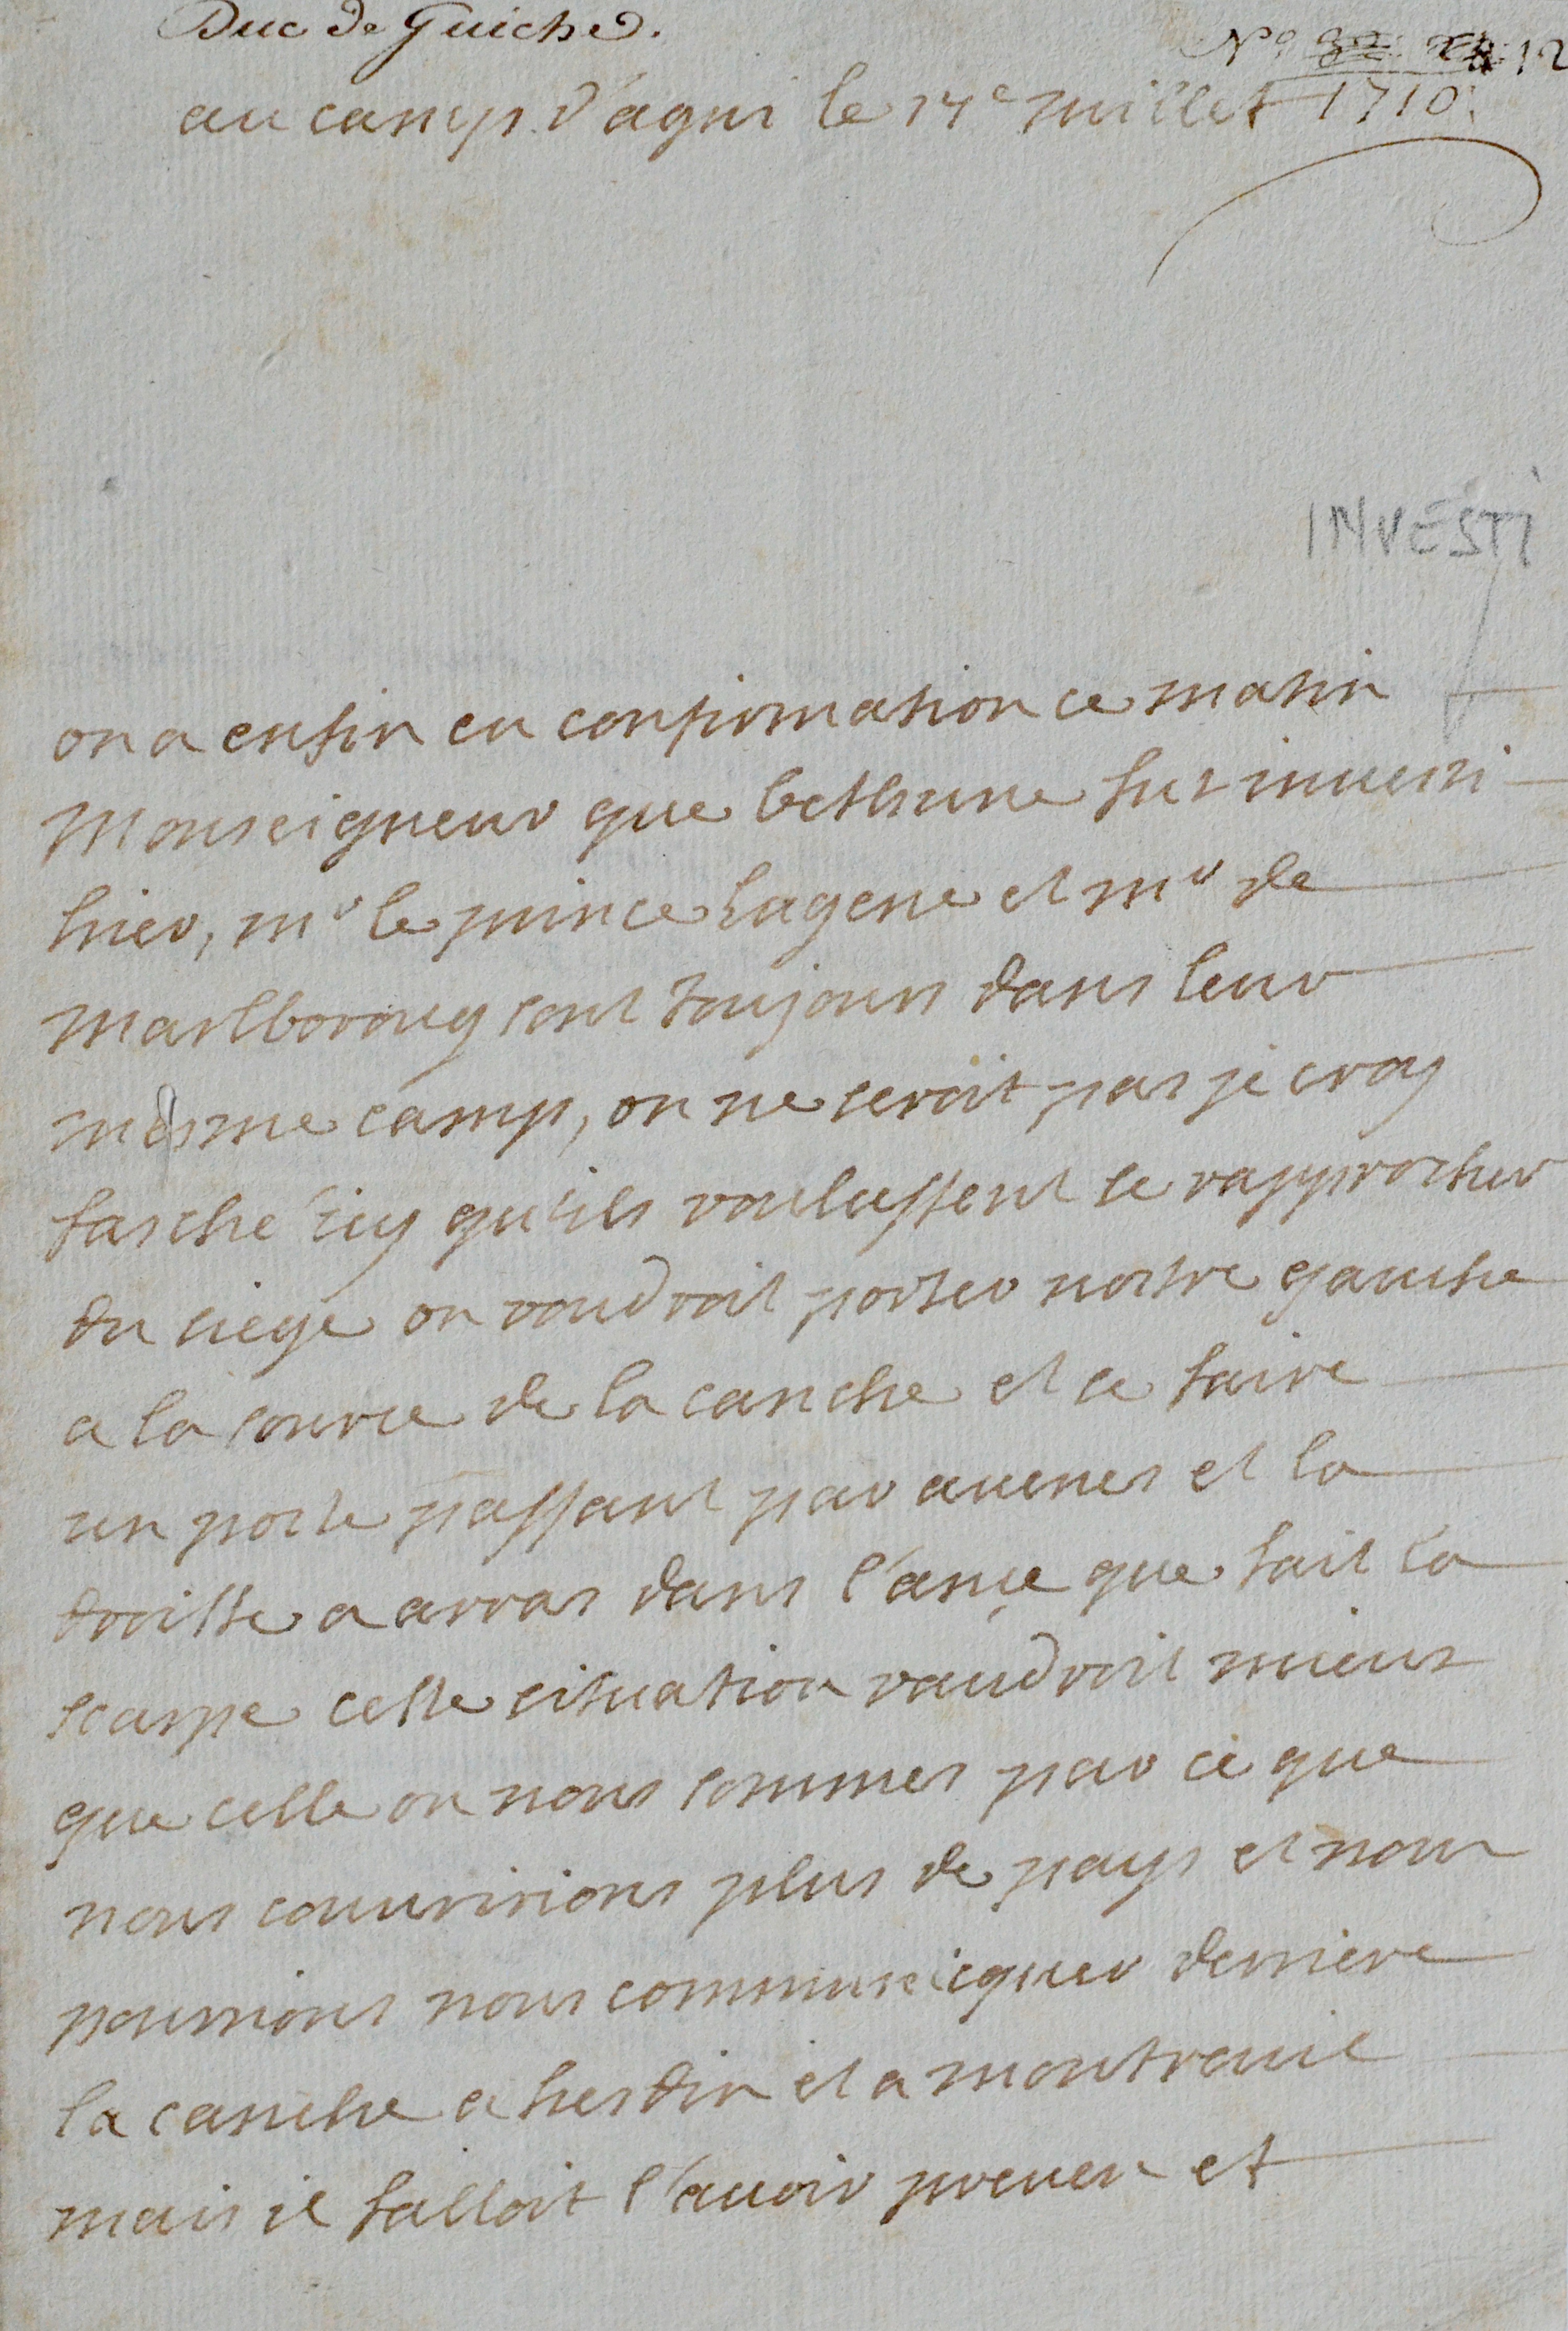 Duc de Guiche.
N° 12
au camp d'agni le 17e juillet 1710.
INVESTI
on a enfin eu confirmation ce matin
Monseigneur que bethune fut inuesti
hier, mr le prince Eugene et mr de
marlboroug sont toujours dans leur
mesme camp, on ne seroit pas je croy
fasché icy qu'ils voulussent se rapprocher
du siege on voudroit porter nostre gauche
a la source de la canche et ce faire
un poste passant par auenes et la
droitte a arras dans l'ance que fait la
scarpe cette situation vaudroit mieux
que celle ou nous sommes par ce que
nous couuririons plus de pays et nous
pourrions nous communicquer derriere
la canche a hesdin et a montreuil
mais il falloit l'auoir preueu et